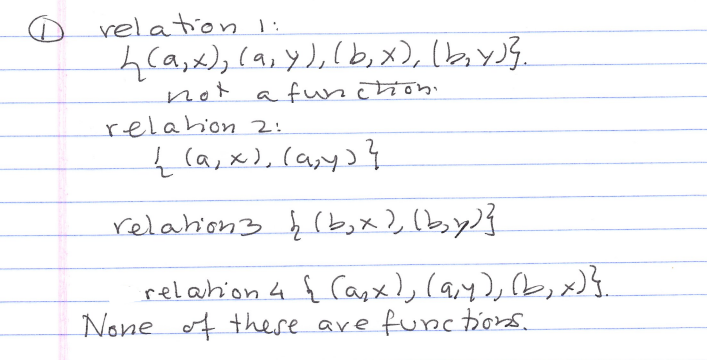 ① relation 1:
{(a,x), (a,y), (b,x), (b,y)}.
not a function.
relation 2:
{(a,x), (a,y)}
relation3 {(b,x), (b,y)}
relation 4 {(a,x), (a,y), (b,x)}.
None of these are functions.